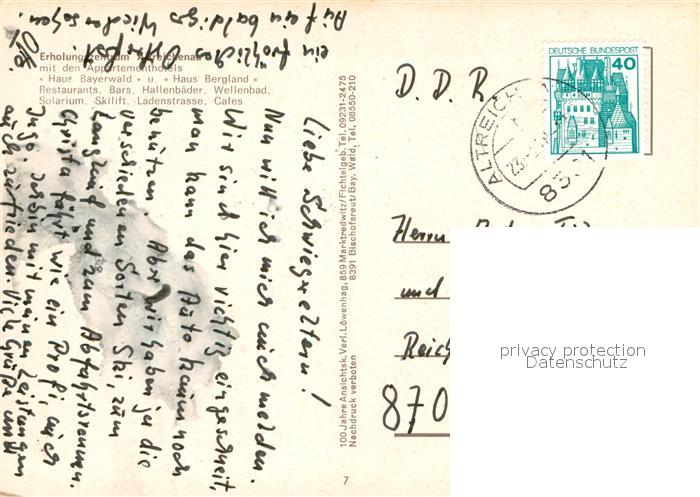 Erholungszentrum Altreichenau
mit den Appartementhotels
« Haus Bayerwald » u. « Haus Bergland »
Restaurants, Bars, Hallenbäder, Wellenbad,
Solarium, Skilift, Ladenstrasse, Cafes
Liebe Schwiegereltern!
Nun will ich mich auch melden.
Wir sind hier richtig eingeschneit,
man kann das Auto kaum noch
benutzen. Aber wir haben ja die
verschiedenen Sorten Ski, zum
Langlauf und zum Abfahrtsrennen.
Christa fährt wie ein Profi, auch
Ingo. Ich bin mit meinen Leistungen
auch zufrieden. Viele Grüße und
ein fröhliches Osterfest.
Auf ein baldiges Wiedersehen.
100 Jahre Ansichtsk. Verl. Löwenhag, 859 Marktredwitz/Fichtelgeb. Tel. 09231-2475
8391 Bischofsreut/Bay. Wald, Tel. 08550-210
Nachdruck verboten
7
DEUTSCHE BUNDESPOST
40
ALTREICH
23
D. D. R.
Herrn
und
Reich
870
privacy protection
Datenschutz